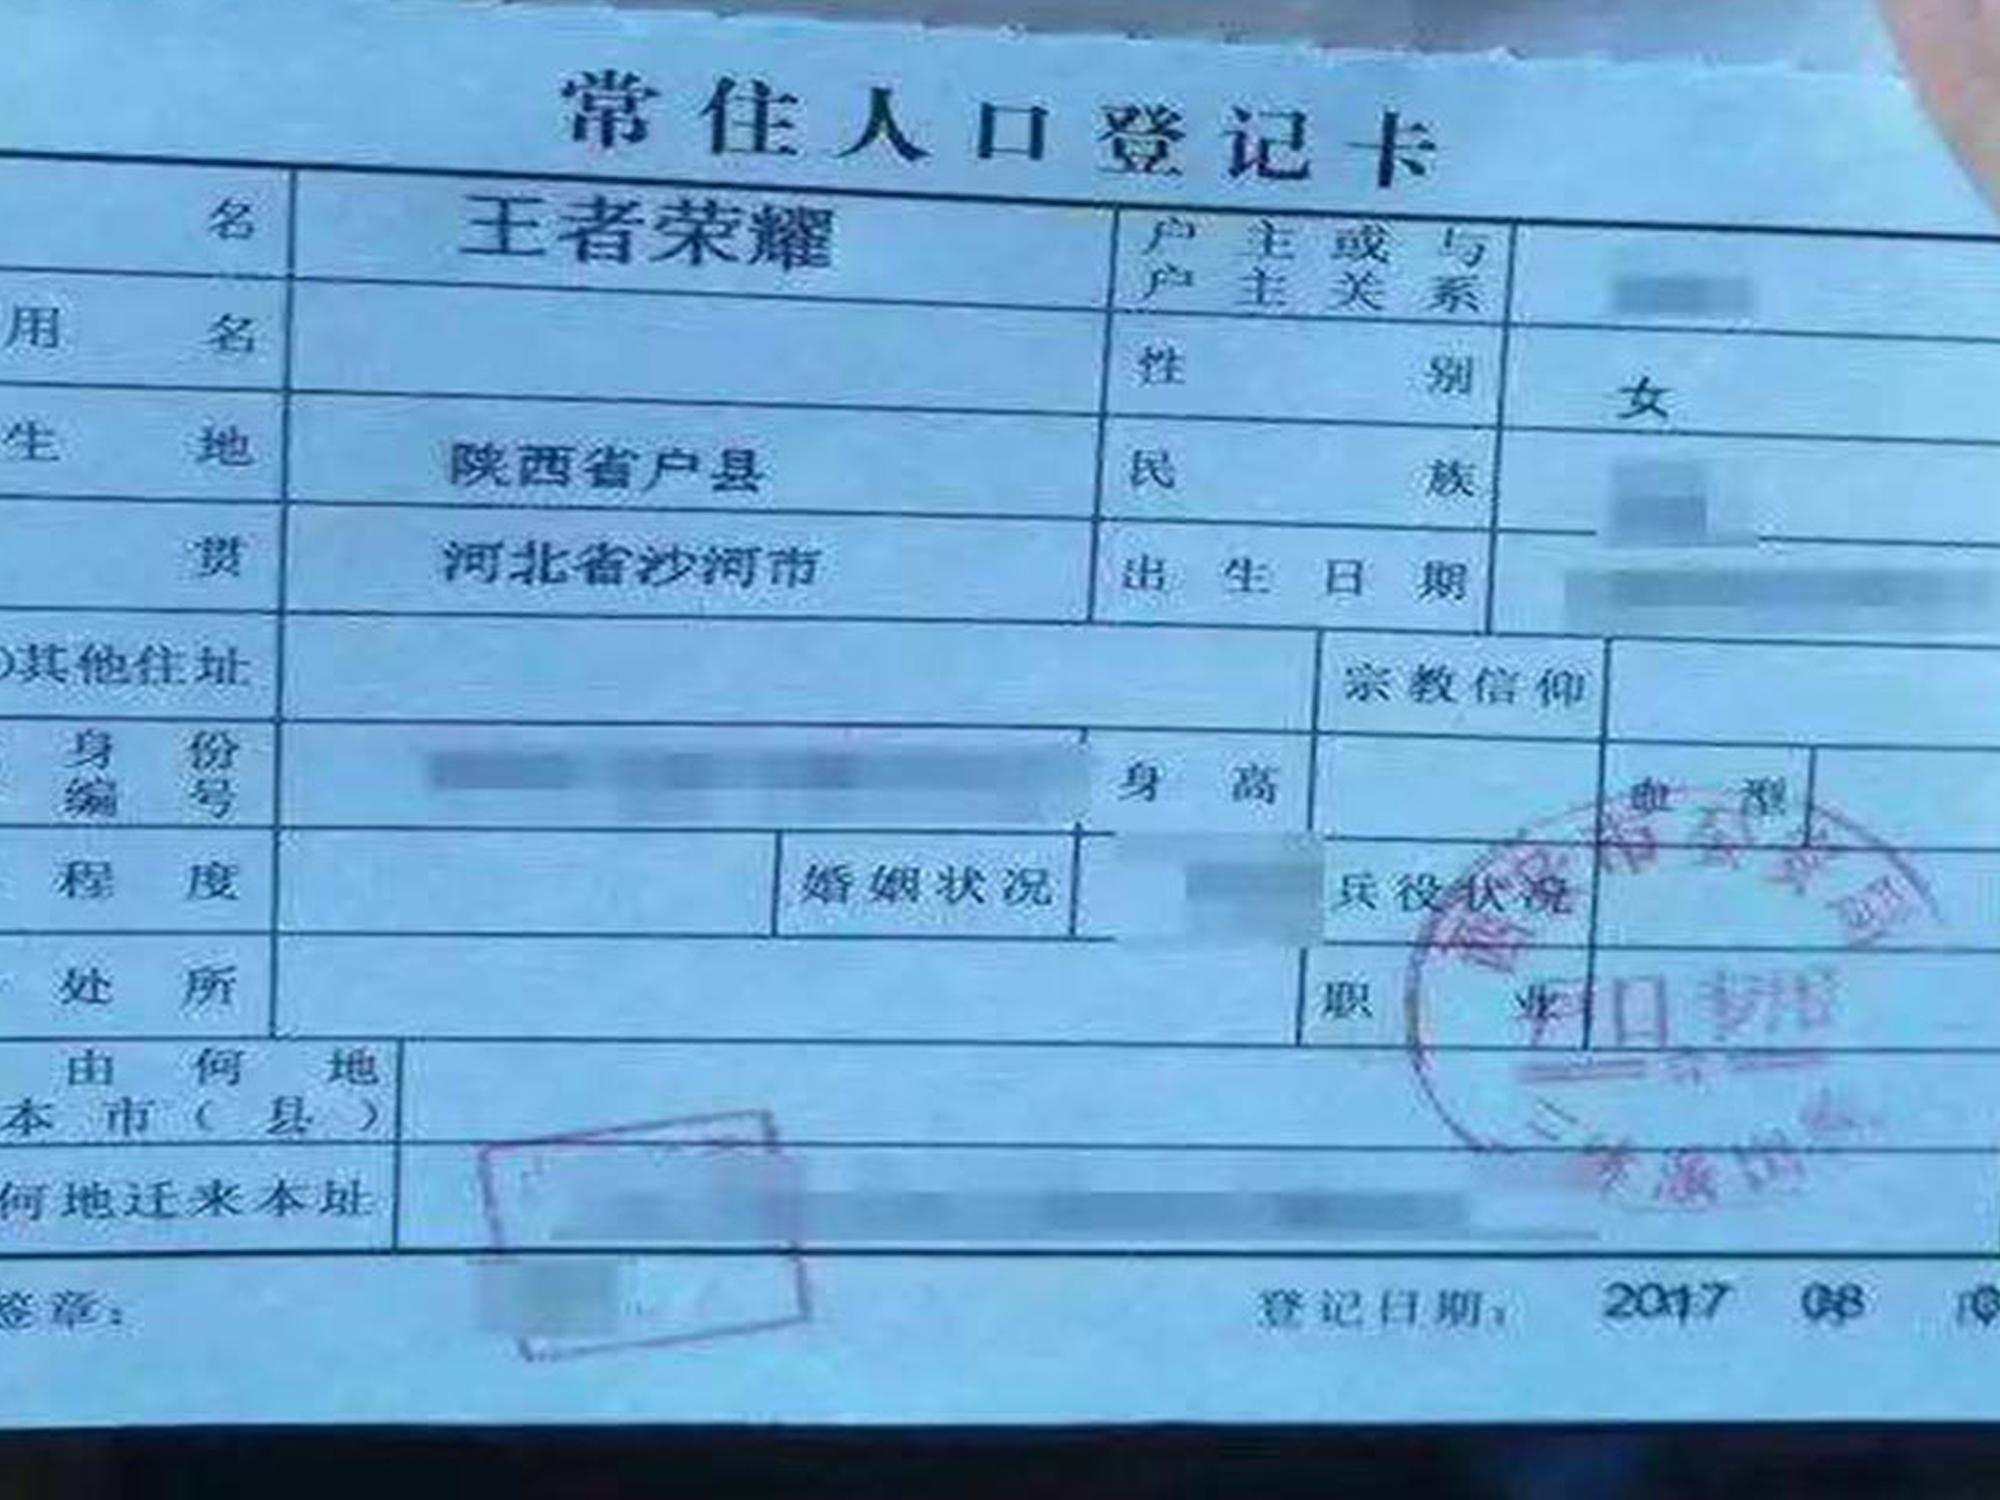 常住人口登记卡
名 王者荣耀 户主或与
户主关系
用名 性别 女
生地 陕西省户县 民族
贯 河北省沙河市 出生日期
)其他住址 宗教信仰
身份
编号 身高 血型
程度 婚姻状况 兵役状况
处所 职业
户口专用
由何地
本市(县)
何地迁来本址
签章: 登记日期: 2017 08